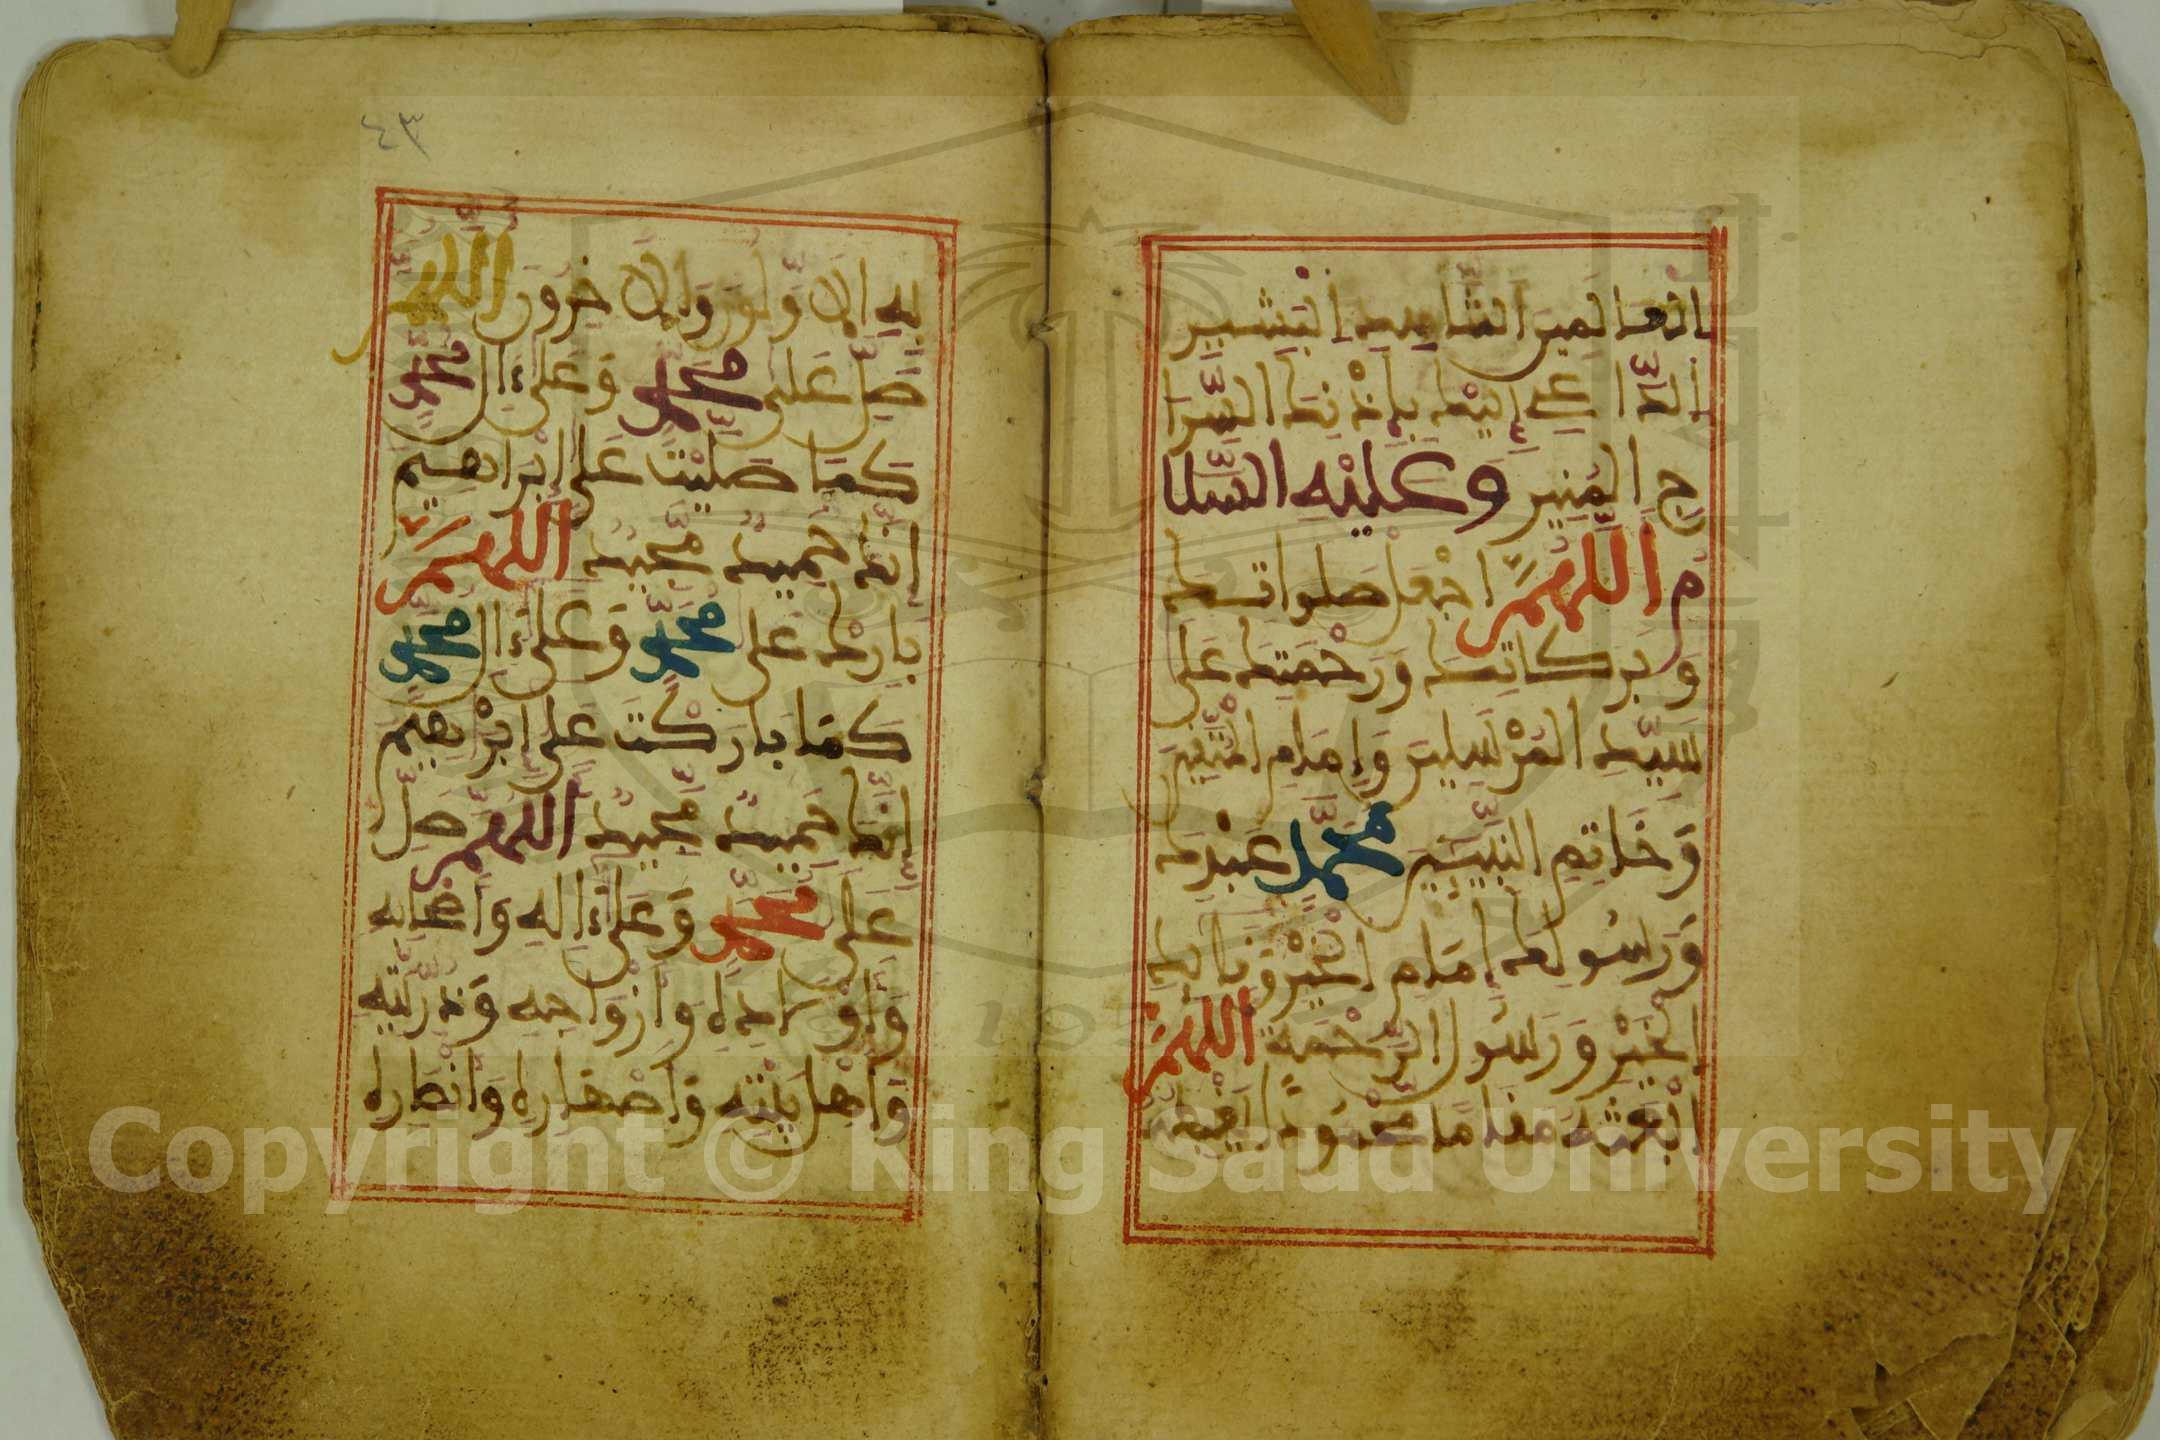 العالمين الشاهد البشير
الداعي إليك بإذنك السرا
ج المنير وعليه السلا
م اللهم اجعل صلواتك
وبركاتك ورحمتك على
سيد المرسلين وإمام المتقين
وخاتم النبيين محمد عبدك
ورسولك إمام الخير وقايد
الخير ورسول الرحمة اللهم
ابعثه مقاما محمودا يغبطه
٣٤
فيه الاولون والاخرون اللهم
صل على محمد وعلى ءال محمد
كما صليت على إبراهيم
إنك حميد مجيد اللهم
بارك على محمد وعلى ءال محمد
كما باركت على إبراهيم
إنك حميد مجيد اللهم صل
على محمد وعلى ءاله وأصحابه
وأولاده وأزواجه وذريته
وأهل بيته وأصهاره وأنصاره
Copyright © King Saud University